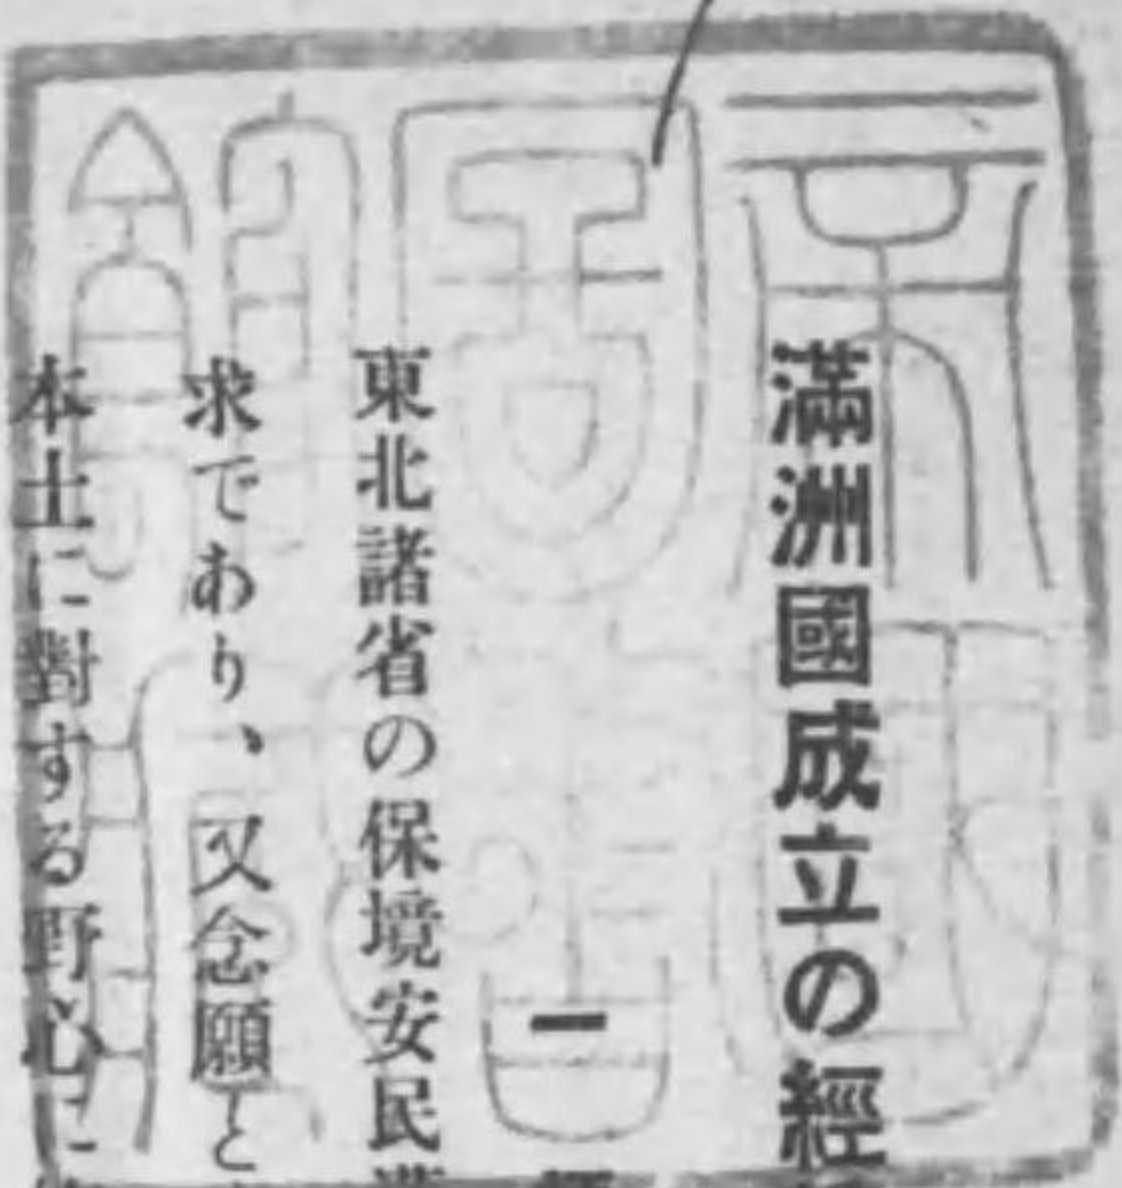 滿洲國成立の經
一
東北諸省の保境安民
求であり、又念願と
本土に對する野心に